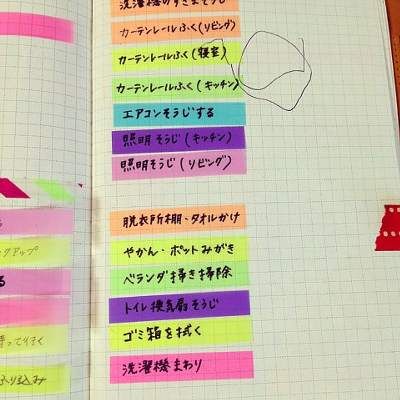 洗濯機のすきまそうじ
カーテンレールふく(リビング)
カーテンレールふく(寝室)
カーテンレールふく(キッチン)
エアコンそうじする
照明そうじ(キッチン)
照明そうじ(リビング)
脱衣所棚・タオルかけ
やかん・ポットみがき
ベランダ掃き掃除
トイレ換気扇そうじ
ゴミ箱を拭く
洗濯機まわり
クアップ
る
持って行く
ふり込み